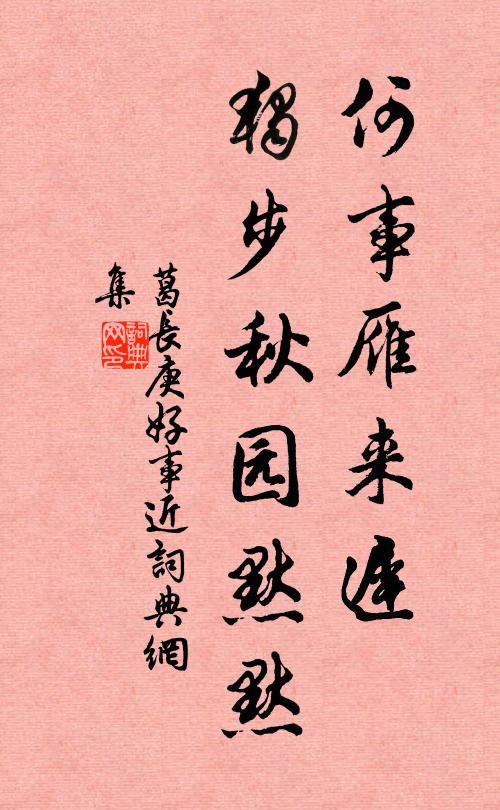 何事雁来遲
獨步秋园默默
葛長庚好事近詞典網
集
詞典
网印